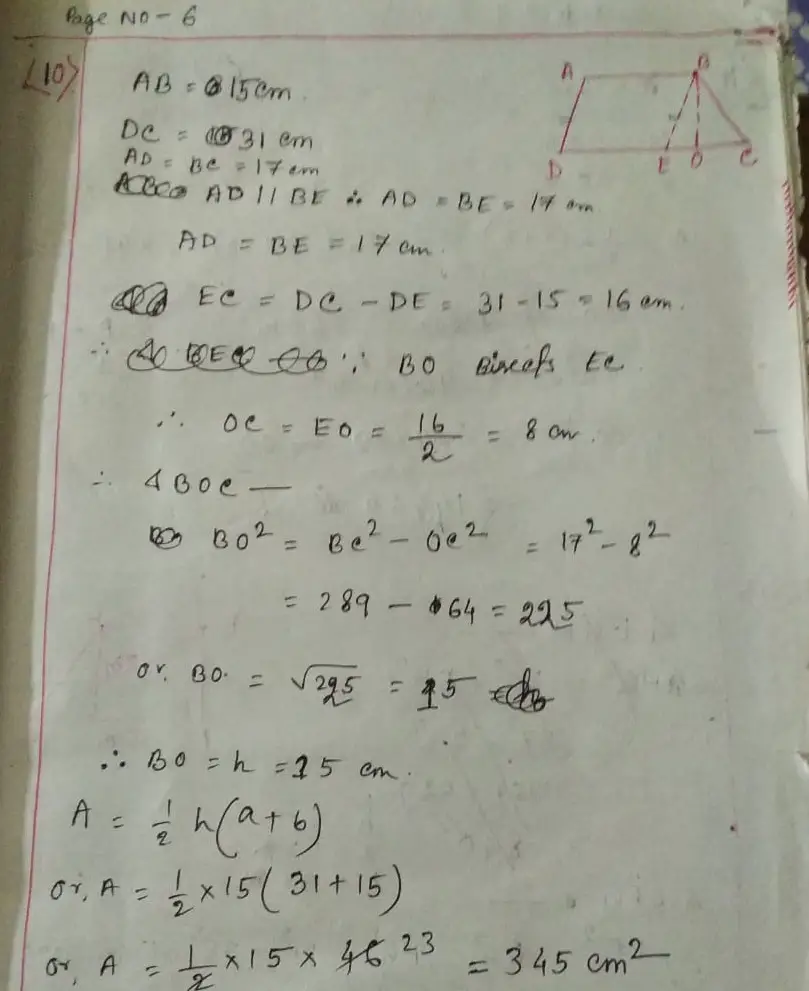 Page No - 6
(10)
AB = 15 cm.
DC = 31 cm
AD = BC = 17 cm
AD // BE ∴ AD = BE = 17 cm
AD = BE = 17 cm.
EC = DC - DE = 31 - 15 = 16 cm.
∴ ∵ BO Bisects EC
∴ OC = EO = 16/2 = 8 cm.
∴ ΔBOC —
BO² = BC² - OC² = 17² - 8²
= 289 - 64 = 225
or, BO. = √225 = 15
∴ BO = h = 15 cm.
A = 1/2 h(a+b)
or, A = 1/2 × 15 (31 + 15)
or, A = 1/2 × 15 × 46 23 = 345 cm²
A
B
D
E
O
C